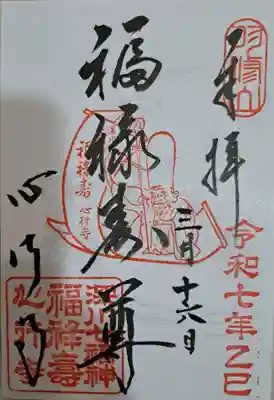 奉拝
令和七年乙巳
三月十六日
福禄寿尊
福禄寿 心行寺
心行寺
深川七福神
福祿壽
心行寺